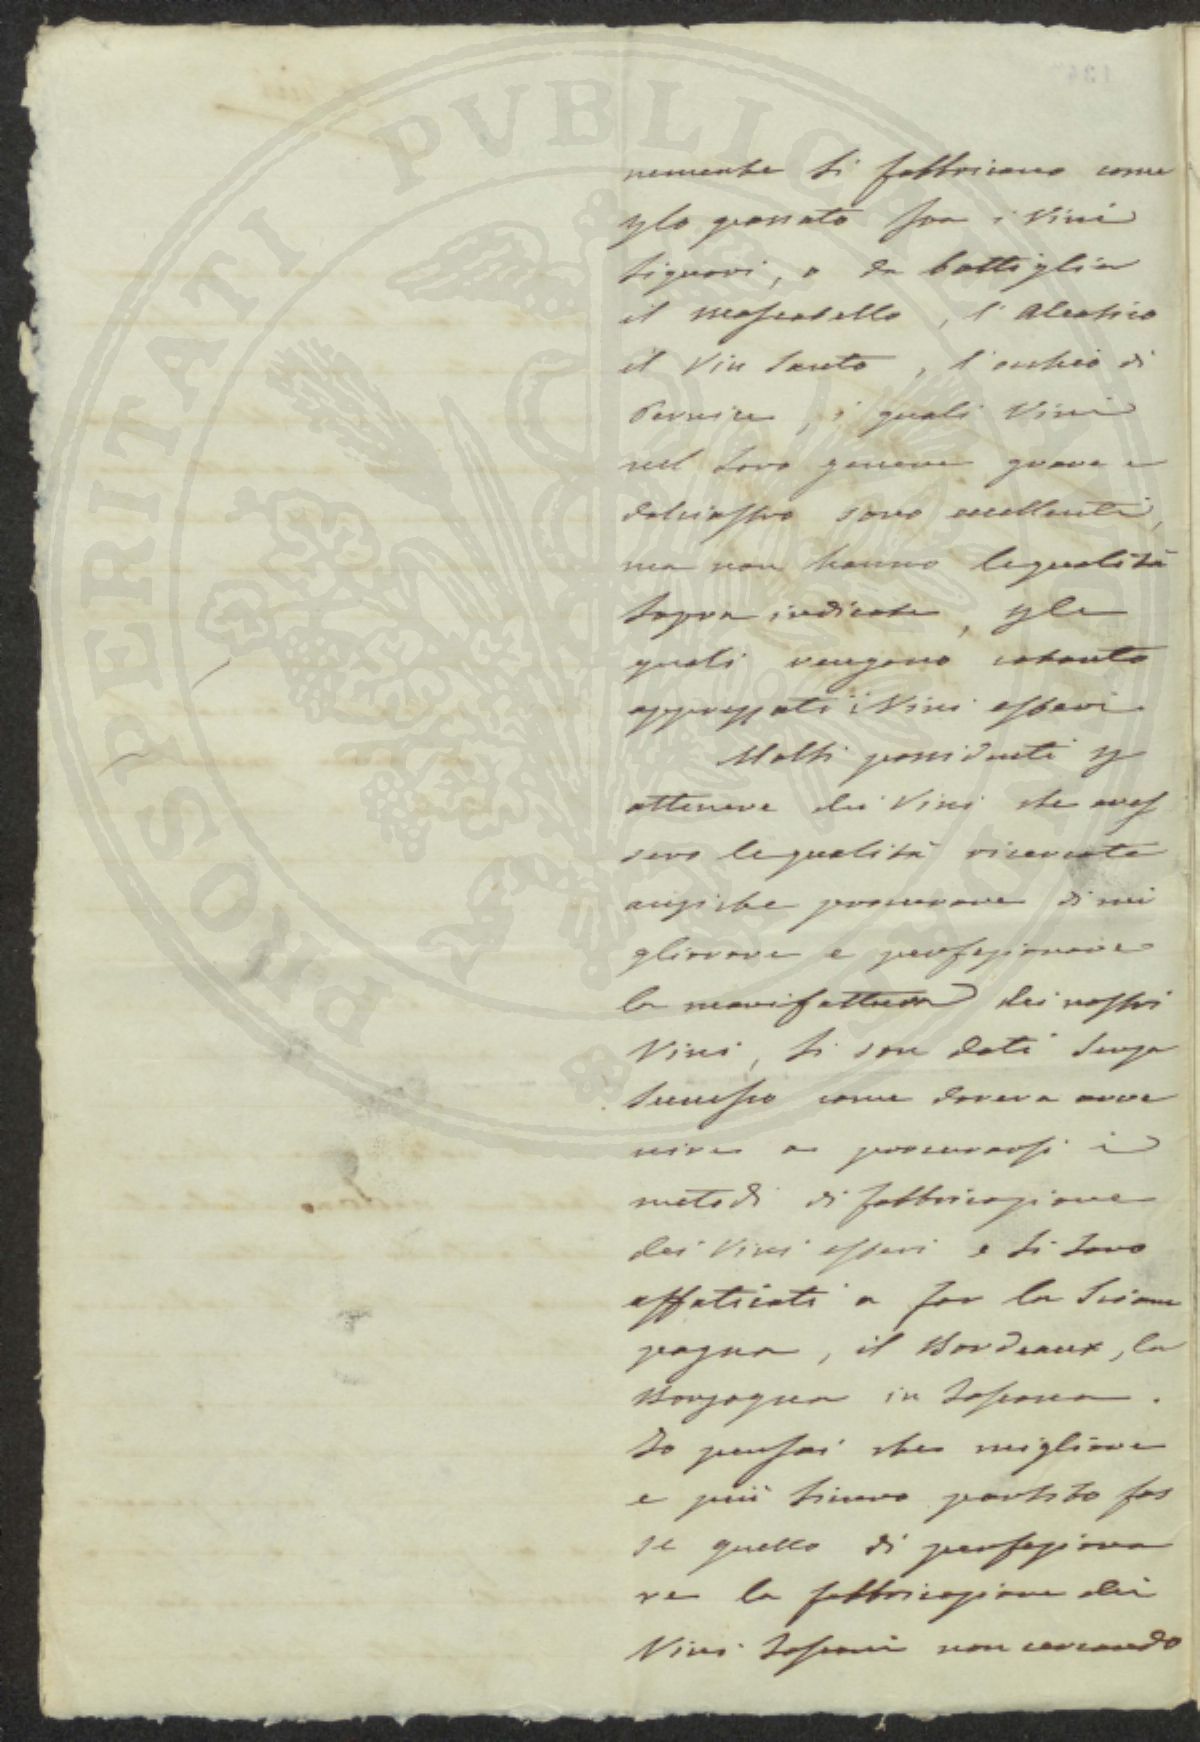 PROSPERITATI PUBLICAE
nemente si fabbricano come
p lo passato fra i Vini
Liquori, o da bottiglia
il Moscadello, l'Aleatico
il Vin Santo, l'occhio di
Pernice, i quali Vini
nel loro genere grave e
dolciastro sono eccellenti,
ma non hanno le qualità
sopra indicate, p le
quali vengono cotanto
apprezzati i Vini esteri
Molti possidenti p
ottenere dei Vini che aves
sero le qualità ricercate
anziche procurare di mi
gliorare e perfezionare
la manifattura dei nostri
Vini, si son dati senza
successo come doveva avve
nire a procurarsi i
metodi di fabbricazione
dei Vini esteri e si sono
affaticati a far la Sciam
pagna, il Bordeaux, la
Borgogna in Toscana.
Io pensai che migliore
e più sicuro partito fos
se quello di perfeziona
re la fabbricazione dei
Vini Toscani non cercando